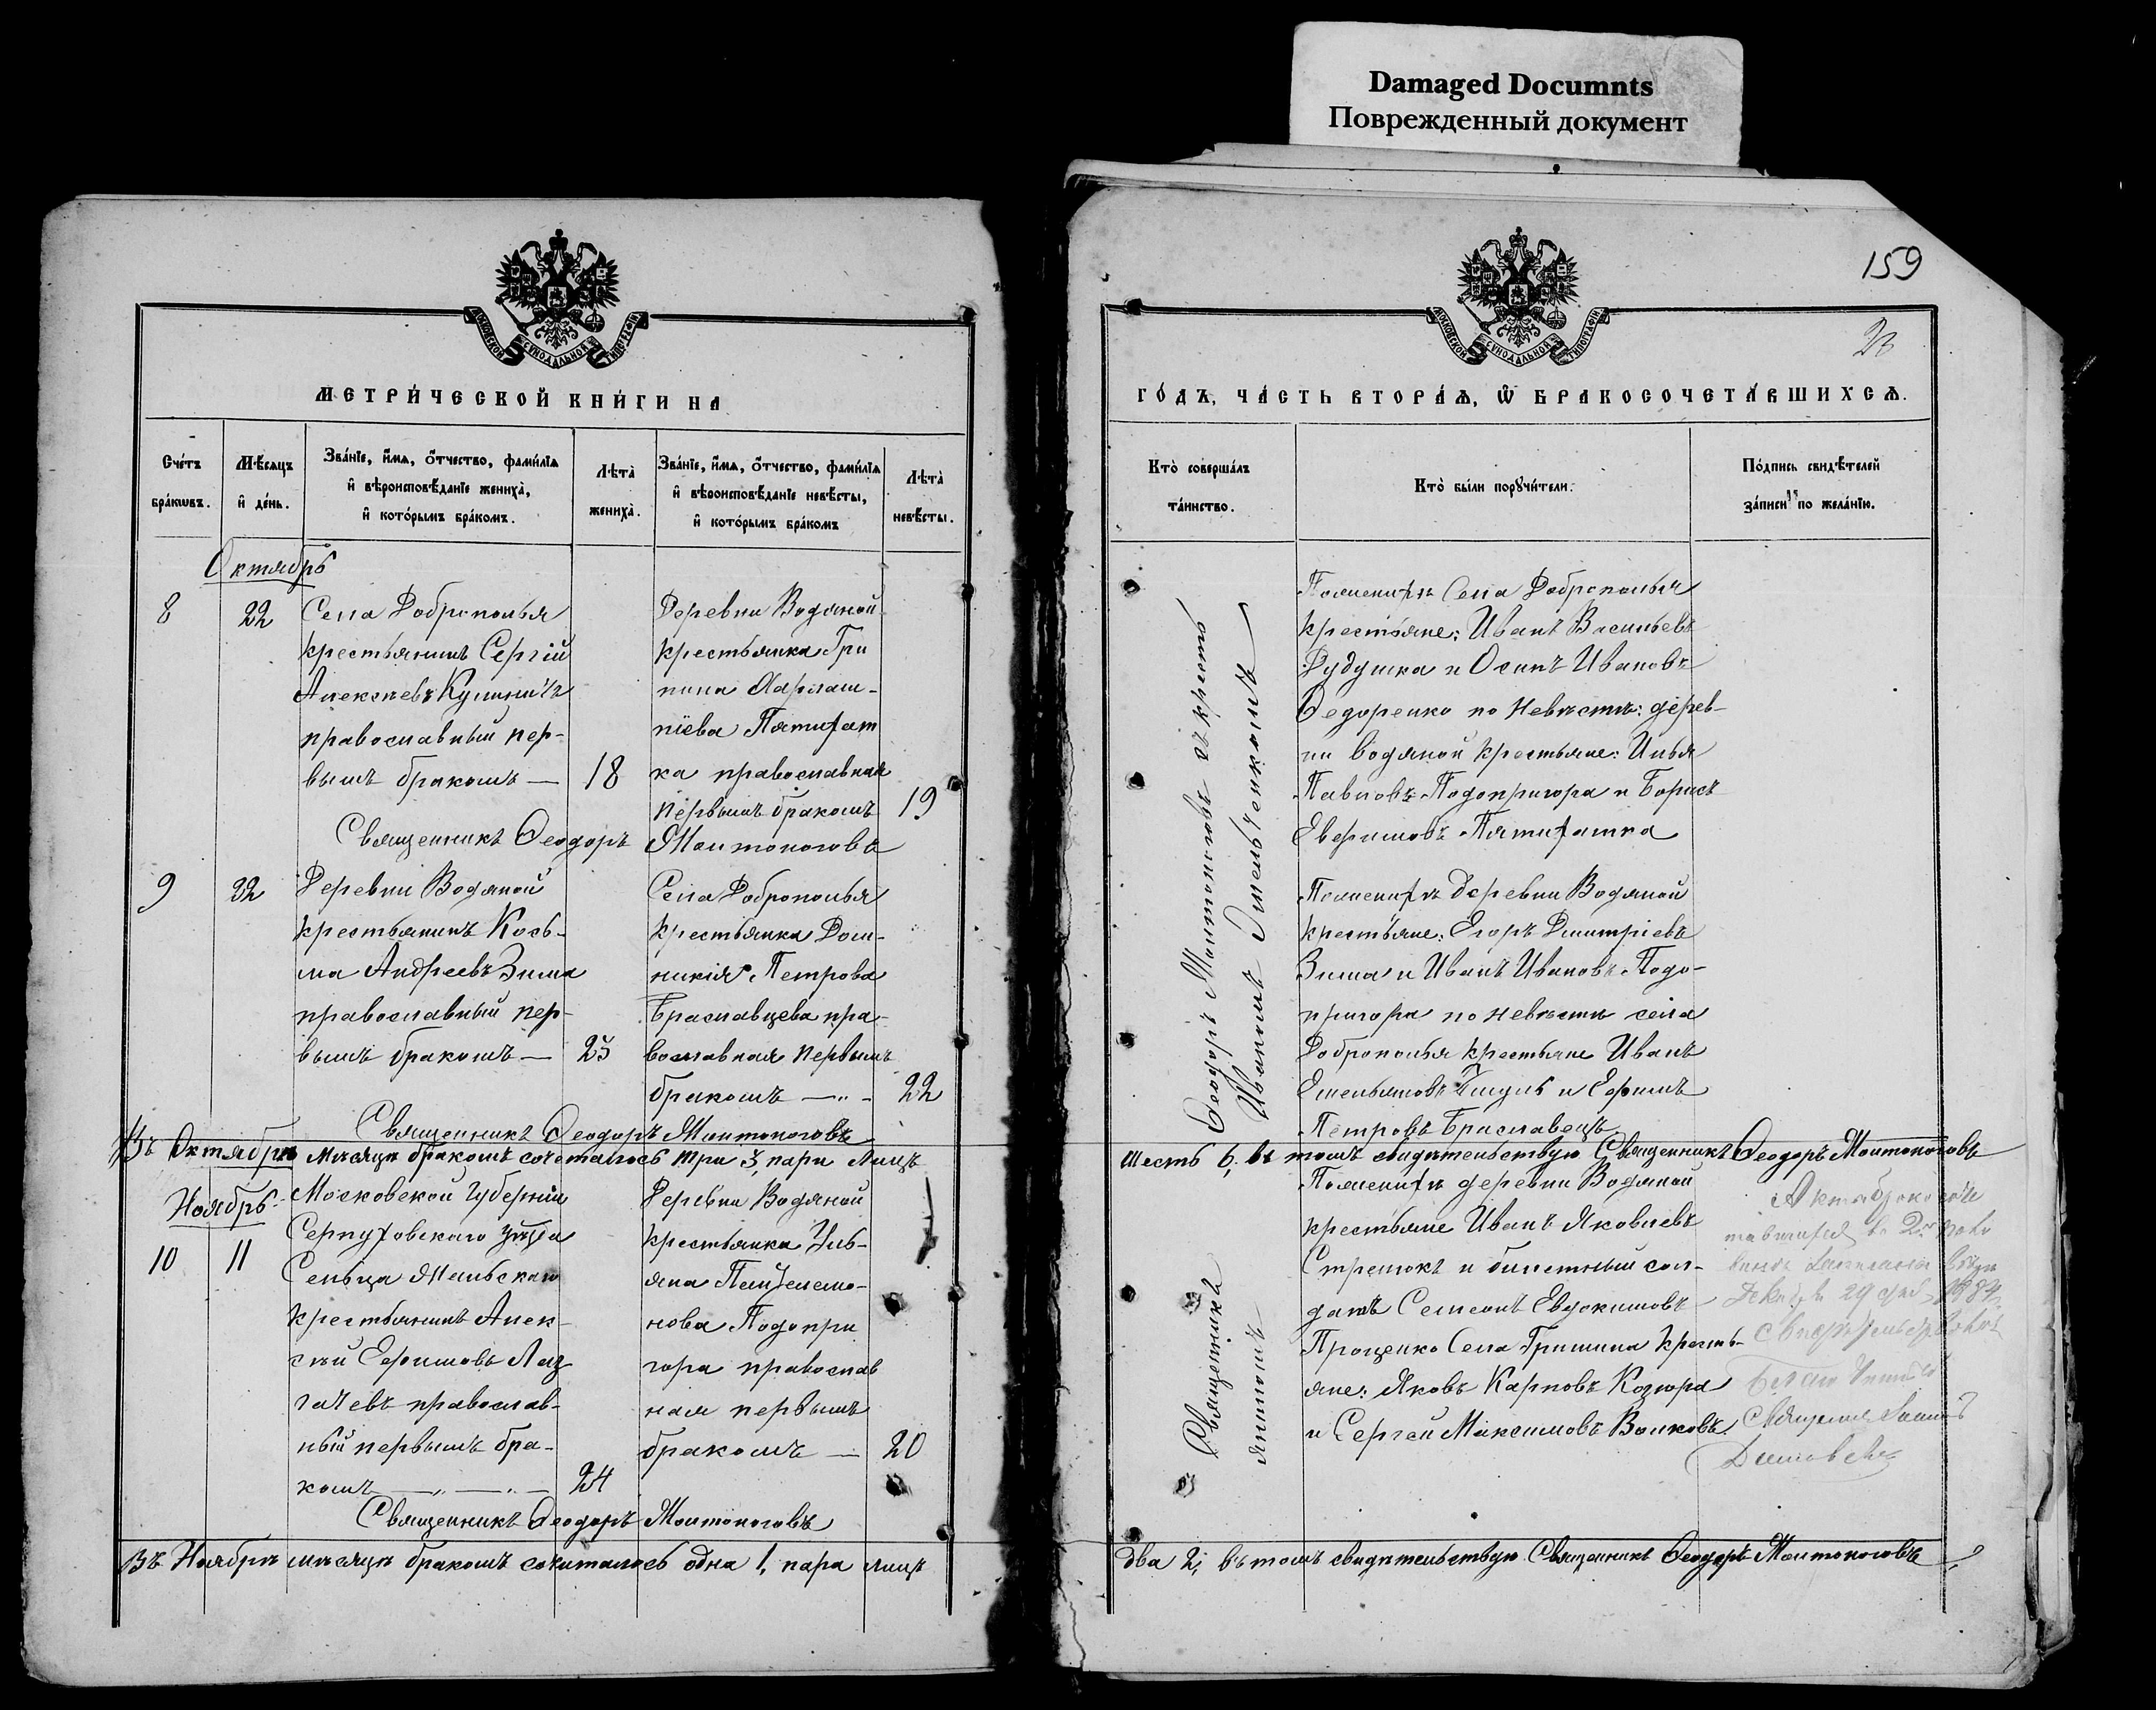 Damaged Documnts
Поврежденный документ
МОСКОВСКОЙ СѴНОДАЛЬНОЙ ТИПОГРАФІИ
МЕТРИ́ЧЕСКОЙ КНИ́ГИ НА
Сче́тъ бра́кѡвъ.
Мѣ́сяцъ и҆ де́нь.
Зва́нїе, и҆́мѧ, ѻ҆́тчество, фами́лїѧ
и҆ вѣроисповѣ́данїе жениха̀,
и҆ кото́рымъ бра́комъ.
Лѣта̀ жениха̀.
Зва́нїе, и҆́мѧ, ѻ҆́тчество, фами́лїѧ
и҆ вѣроисповѣ́данїе невѣ́сты,
и҆ кото́рымъ бра́комъ
Лѣта̀ невѣ́сты.
Октябрь
8
22
Села Доброполья
крестьянинъ Сергій
Алексѣевъ
православный пер-
вымъ бракомъ —
18
Деревни Водяной
крестьянка Гри
пина Харлам-
піева Пятихат
ка православная
первымъ бракомъ
19
Священникъ Ѳеодоръ Молтоноговъ
9
22
Деревни Водяной
крестьянинъ Козь-
ма Андреевъ Зима
православный пер-
вымъ бракомъ —
25
Села Доброполья
крестьянка Дом-
никія Петрова
Браславцева пра-
вославная первымъ
бракомъ —„-
22
Священникъ Ѳеодоръ Молтоноговъ
Въ Октябрѣ мѣсяцѣ бракомъ сочеталось три 3, пары лицъ
Ноябрь
10
11
Московской Губерніи
Серпуховского уѣзда
Сельца
крестьянинъ Алек-
сѣй Ефимовъ
гачевъ православ-
ный первымъ бра-
комъ —„—„—
24
Деревни Водяной
крестьянка Уль-
яна
нова Подопри
гора православ
ная первымъ
бракомъ —
20
Священникъ Ѳеодоръ Молтоноговъ
Въ Ноябрѣ мѣсяцѣ бракомъ сочиталось одна 1, пара лицъ
159
МОСКОВСКОЙ СѴНОДАЛЬНОЙ ТИПОГРАФІИ
ГО́ДЪ, ЧА́СТЬ ВТОРА́Ѧ, Ѡ҆ БРАКОСОЧЕТА́ВШИХСѦ.
Кто̀ соверша́лъ
та́инство.
Кто̀ бы́ли порꙋчи́тели.
По́дпись свидѣ́телей
за́писи по жела́нїю.
Ѳеодоръ Молтоноговъ съ
Иваномъ Омельченкомъ
По женихѣ Села Доброполья
крестьяне: Иванъ Васильевъ
Дудушка и Осипъ Ивановъ
Ѳедоренко по невѣстѣ: дерев-
ни водяной крестьяне: Илья
Павловъ Подопригора и Борисъ
Евфимовъ Пятихатка
По женихѣ деревни Водяной
крестьяне: Егоръ Дмитріевъ
Зима и Иванъ Ивановъ Подо-
пригора по невѣстѣ села
Доброполья крестьяне Иванъ
Емельяновъ и Ефимъ
Петровъ Браславецъ
шесть 6. въ томъ свидѣтельствую Священникъ Ѳеодоръ Молтоноговъ
Священникъ
По женихѣ деревни Водяной
крестьяне Иванъ Яковлевъ
Стрелокъ и билетный сол-
датъ Семенъ Евдокимовъ
Проценко Села Гришина кресть-
яне: Яковъ Карповъ
и Сергей Максимовъ Волковъ
два 2, въ томъ свидѣтельствую Священникъ Ѳеодоръ Молтоноговъ